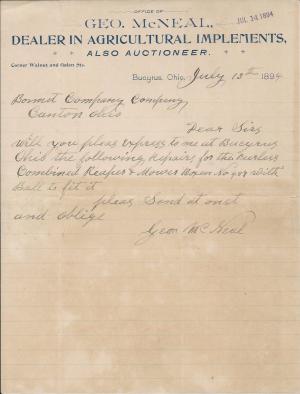 OFFICE OF
GEO. McNEAL,
JUL 14 1894
DEALER IN AGRICULTURAL IMPLEMENTS,
ALSO AUCTIONEER.
Corner Walnut and Galen Sts.
Bucyrus, Ohio, July 13th 1894
Bonnot Company Company
Canton Ohio
Dear Sirs
Will you pleas express to me at Bucyrus
Ohio the following Repairs for the
Combined Reaper & Mower No with
Ball to fit it
pleas Send at onst
and oblige
Geo McNeal